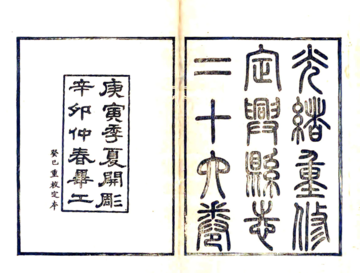 光緒重修
定興縣志
二十六卷
庚寅季夏開彫
辛卯仲春畢工
癸巳重校定本